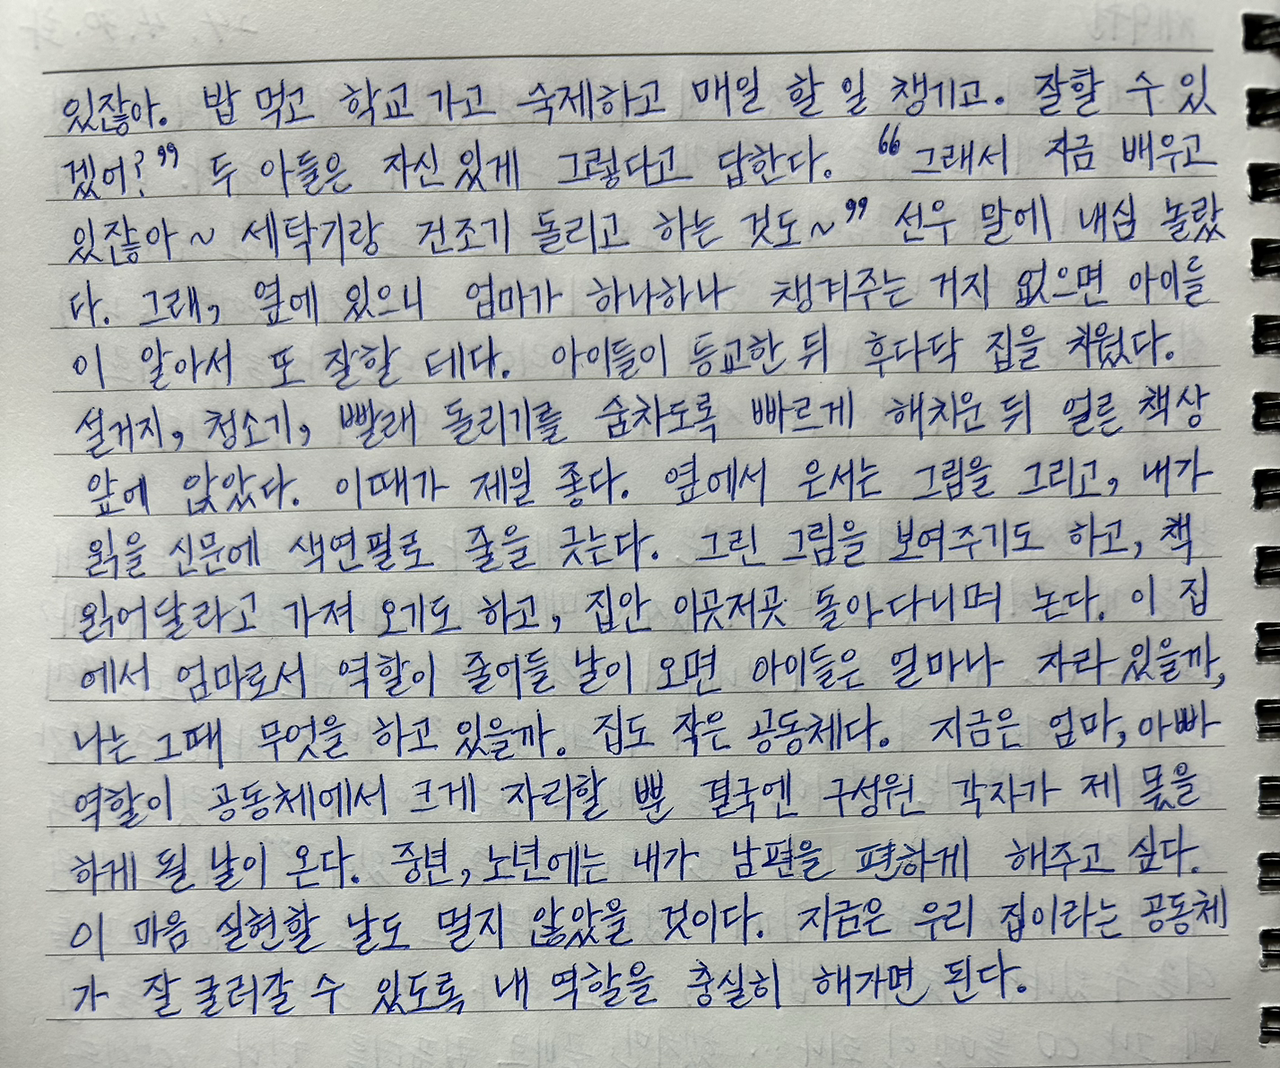 있잖아. 밥 먹고 학교 가고 숙제하고 매일 할 일 챙기고. 잘할 수 있
겠어?" 두 아들은 자신 있게 그렇다고 답한다. "그래서 지금 배우고
있잖아~ 세탁기랑 건조기 돌리고 하는 것도~" 선우 말에 내심 놀랐
다. 그래, 옆에 있으니 엄마가 하나하나 챙겨주는 거지 없으면 아이들
이 알아서 또 잘할 테다. 아이들이 등교한 뒤 후다닥 집을 치웠다.
설거지, 청소기, 빨래 돌리기를 숨차도록 빠르게 해치운 뒤 얼른 책상
앞에 앉았다. 이때가 제일 좋다. 옆에서 은서는 그림을 그리고, 내가
읽을 신문에 색연필로 줄을 긋는다. 그린 그림을 보여주기도 하고, 책
읽어달라고 가져 오기도 하고, 집안 이곳저곳 돌아다니며 논다. 이 집
에서 엄마로서 역할이 줄어들 날이 오면 아이들은 얼마나 자라 있을까,
나는 그때 무엇을 하고 있을까. 집도 작은 공동체다. 지금은 엄마, 아빠
역할이 공동체에서 크게 자리할 뿐 결국엔 구성원 각자가 제 몫을
하게 될 날이 온다. 중년, 노년에는 내가 남편을 편하게 해주고 싶다.
이 마음 실현할 날도 멀지 않았을 것이다. 지금은 우리 집이라는 공동체
가 잘 굴러갈 수 있도록 내 역할을 충실히 해가면 된다.